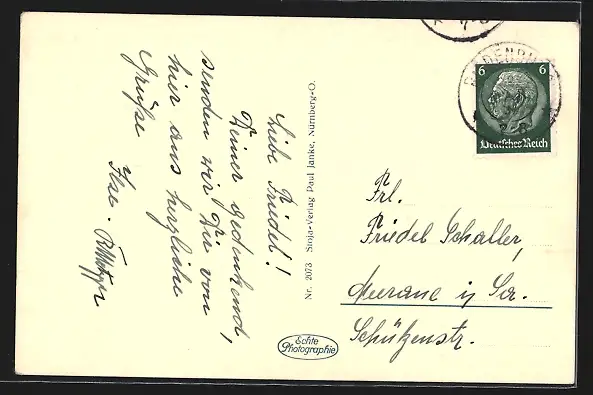 Liebe Friedel!
Deiner gedenkend,
senden wir Dir von
hier aus herzliche
Grüße
Ilse.
Nr. 2073 Stoja-Verlag Paul Janke, Nürnberg-O.
Echte
Photographie
6 6
Deutsches Reich
Frl.
Friedel Schaller,
Meerane i/ Sa.
Schützenstr.